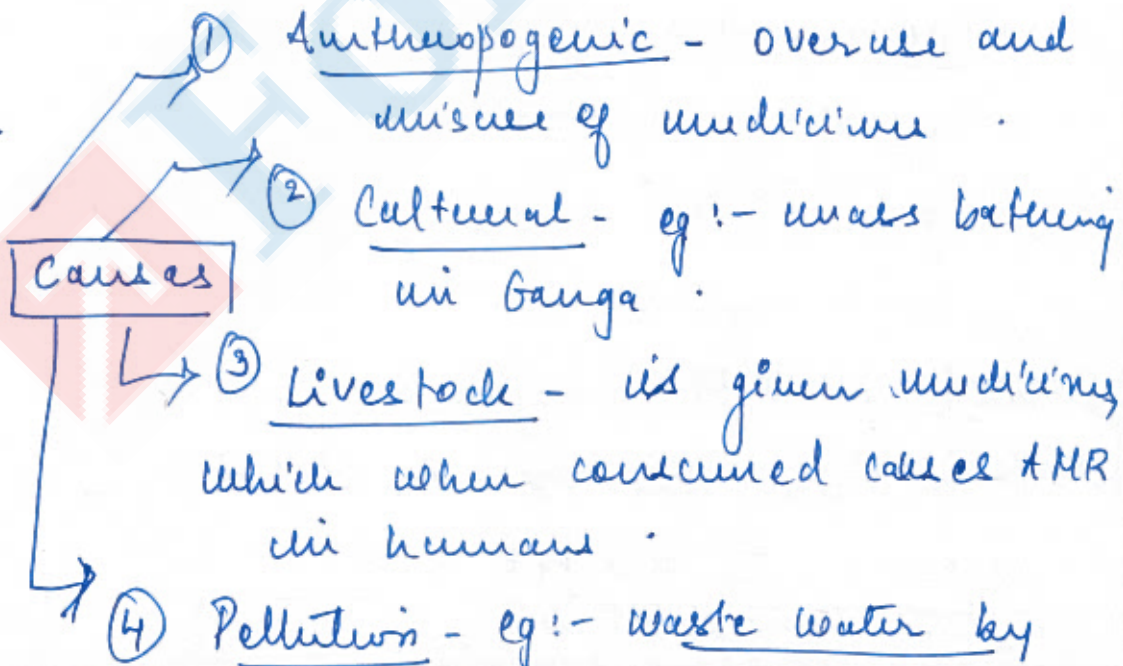 ① Anthropogenic - overuse and
misuse of medicine.
② Cultural - eg:- mass bathing
in Ganga.
Causes
③ Livestock - is given medicines,
which when consumed causes AMR
in humans.
④ Pollution - eg:- waste water by